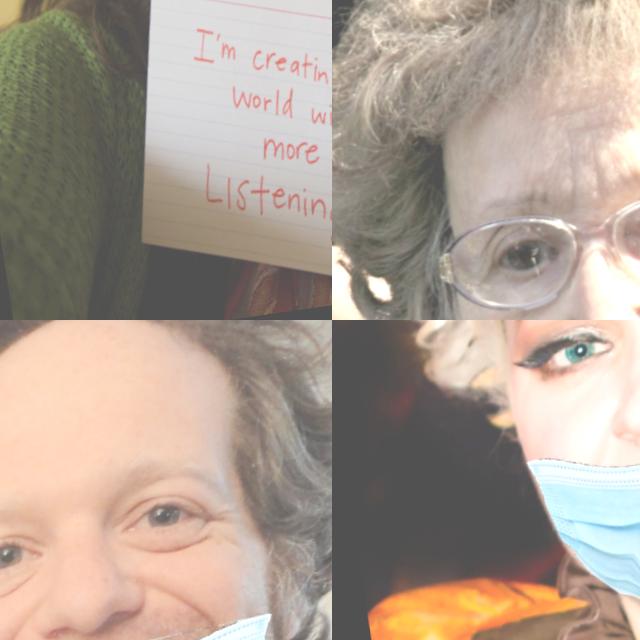 I'm creatin
world wi
more
Listening